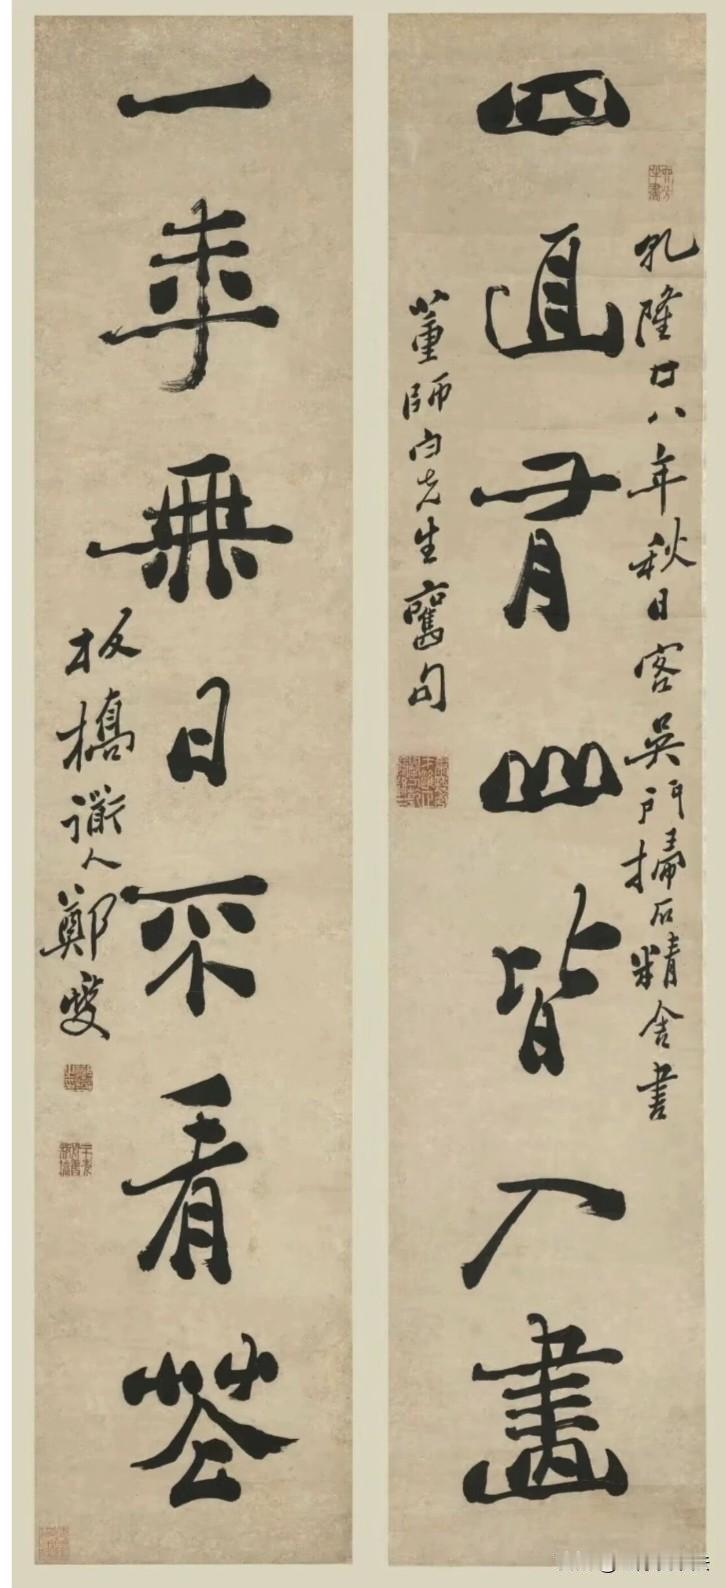 四面青山皆入畫
乾隆廿八年秋日客吳門掃石精舍書
董師白先生舊句
一年無日不看花
板橋道人鄭燮